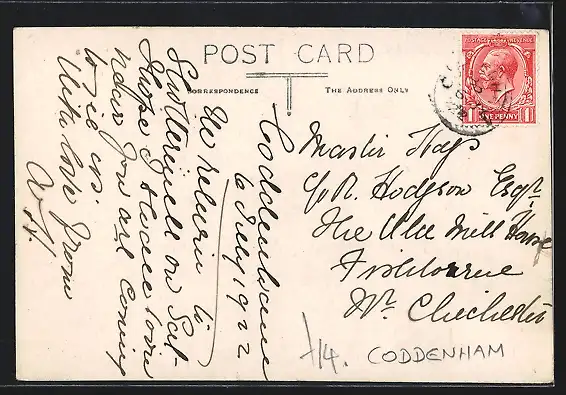 POST CARD
CORRESPONDENCE
THE ADDRESS ONLY
POSTAGE REVENUE
ONE PENNY
Coddenham
6 July 1922
We return to
on Sat-
I hope I shall soon
hear you are coming
to see us.
With love from
Master Hays
c/o R. Hodgson Esqr
The Old Mill House
Fishbourne
Nr. Chichester
14. CODDENHAM